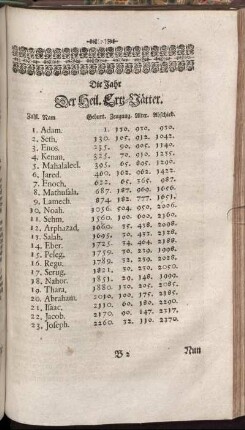 Die Jahr
Der Heil. Ertz-Vätter.
Zahl. Nam Geburt. Zeugung. Alter. Abschied.
1. Adam. 1. 130. 930. 930.
2. Seth, 130. 105. 912. 1042.
3. Enos. 235. 90. 905. 1140.
4. Kenan, 325. 70. 910. 1235.
5. Mahalaleel. 395. 65. 895. 1290.
6. Jared. 460. 162. 962. 1422.
7. Enoch, 622. 65. 365.
8. Mathusala, 687. 187. 969. 1656.
9. Lamech. 874. 182. 777. 1651.
10. Noah, 1056. 502. 950.
11. Sehm, 1560. 100. 600.
12. Arphaxad,
13. Salah, 1695.
14. Eber. 1725. 34. 464.
15. Peleg. 1759. 30. 239. 1998.
16. Regu. 1789. 32.
17. Serug, 1821. 30. 230. 2050.
18. Nahor.
19. Thara, 1880. 130. 205. 2085.
20. Abraham. 2010. 100. 175. 2185.
21. Isaac, 2110. 60. 180. 2290.
22. Jacob. 2170. 90. 147. 2317.
23. Joseph. 2260. 32. 110. 2370.
B 2 Nun